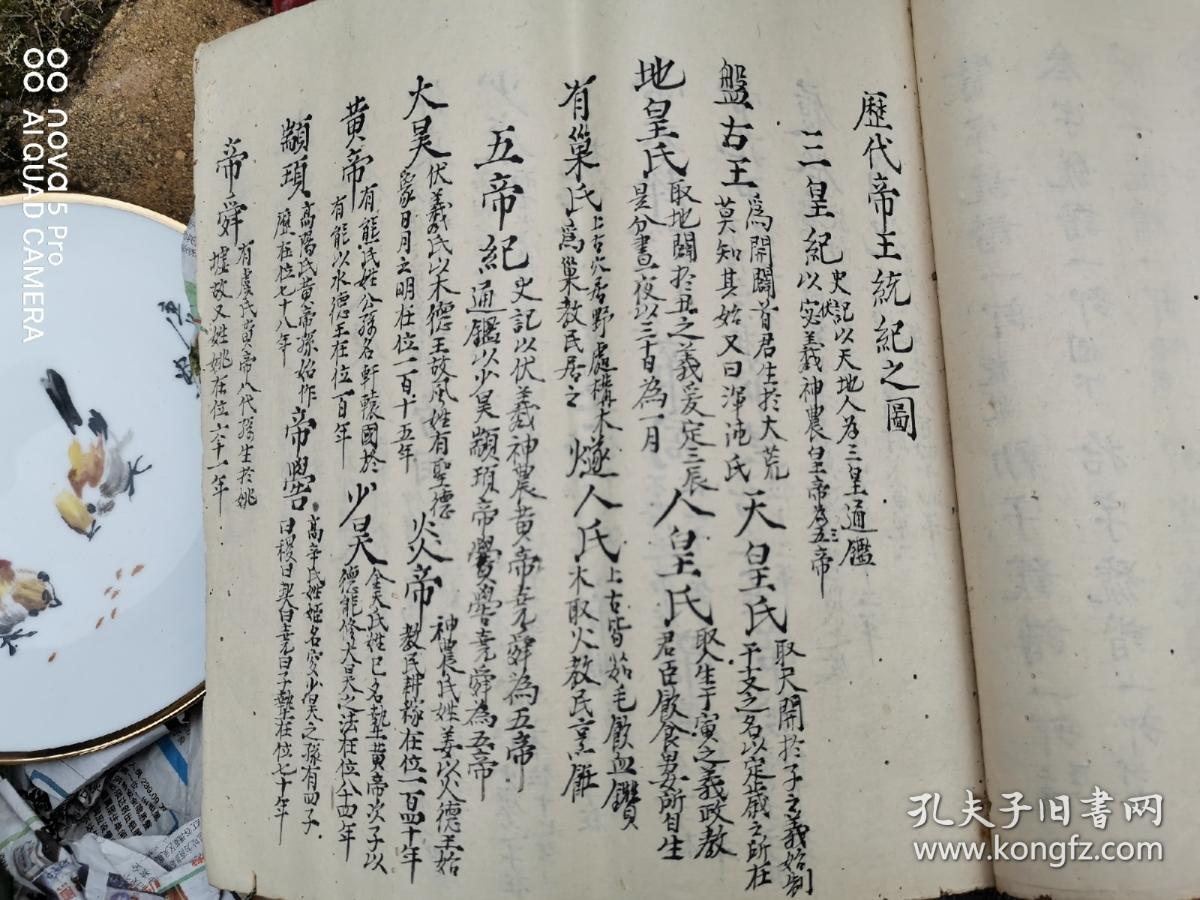 歷代帝王統紀之圖
三皇紀 史記以天地人为三皇通鑑
以宓伏羲神農皇帝為三五帝
盤古王 為開闢首君生於大荒
莫知其始又曰渾沌氏
天皇氏 取天開於子之義始制
干支之名以定歲之所在
地皇氏 取地闢於丑之義爰定三辰
是分晝夜以三十日為一月
人皇氏 取人生于寅之義政教
君臣飲食男女所自生
有巢氏 上古穴居野處構木
為巢教民居之
燧人氏 上古皆茹毛飲血鑽
木取火教民烹飪
五帝紀 史記以伏羲神農黃帝堯舜為五帝
通鑑以少昊顓頊帝嚳堯舜為五帝
太昊 伏羲氏以木德王故風姓有聖德
象日月之明在位一百十五年
炎帝 神農氏姓姜以火德王始
教民耕稼在位一百四十年
黃帝 有熊氏姓公孫名軒轅國於
有熊以水德王在位一百年
少昊 金天氏姓已名摯黃帝次子以
德能修太昊之法在位八十四年
顓頊 高陽氏黃帝孫始作
歷在位七十八年
帝嚳 高辛氏姓姬名岌少昊之孫有四子
曰稷曰契曰堯曰子摯在位七十年
帝舜 有虞氏黃帝八代孫生於姚
墟故又姓姚在位六十一年
nova 5 Pro
AI QUAD CAMERA
孔夫子旧书网
www.kongfz.com